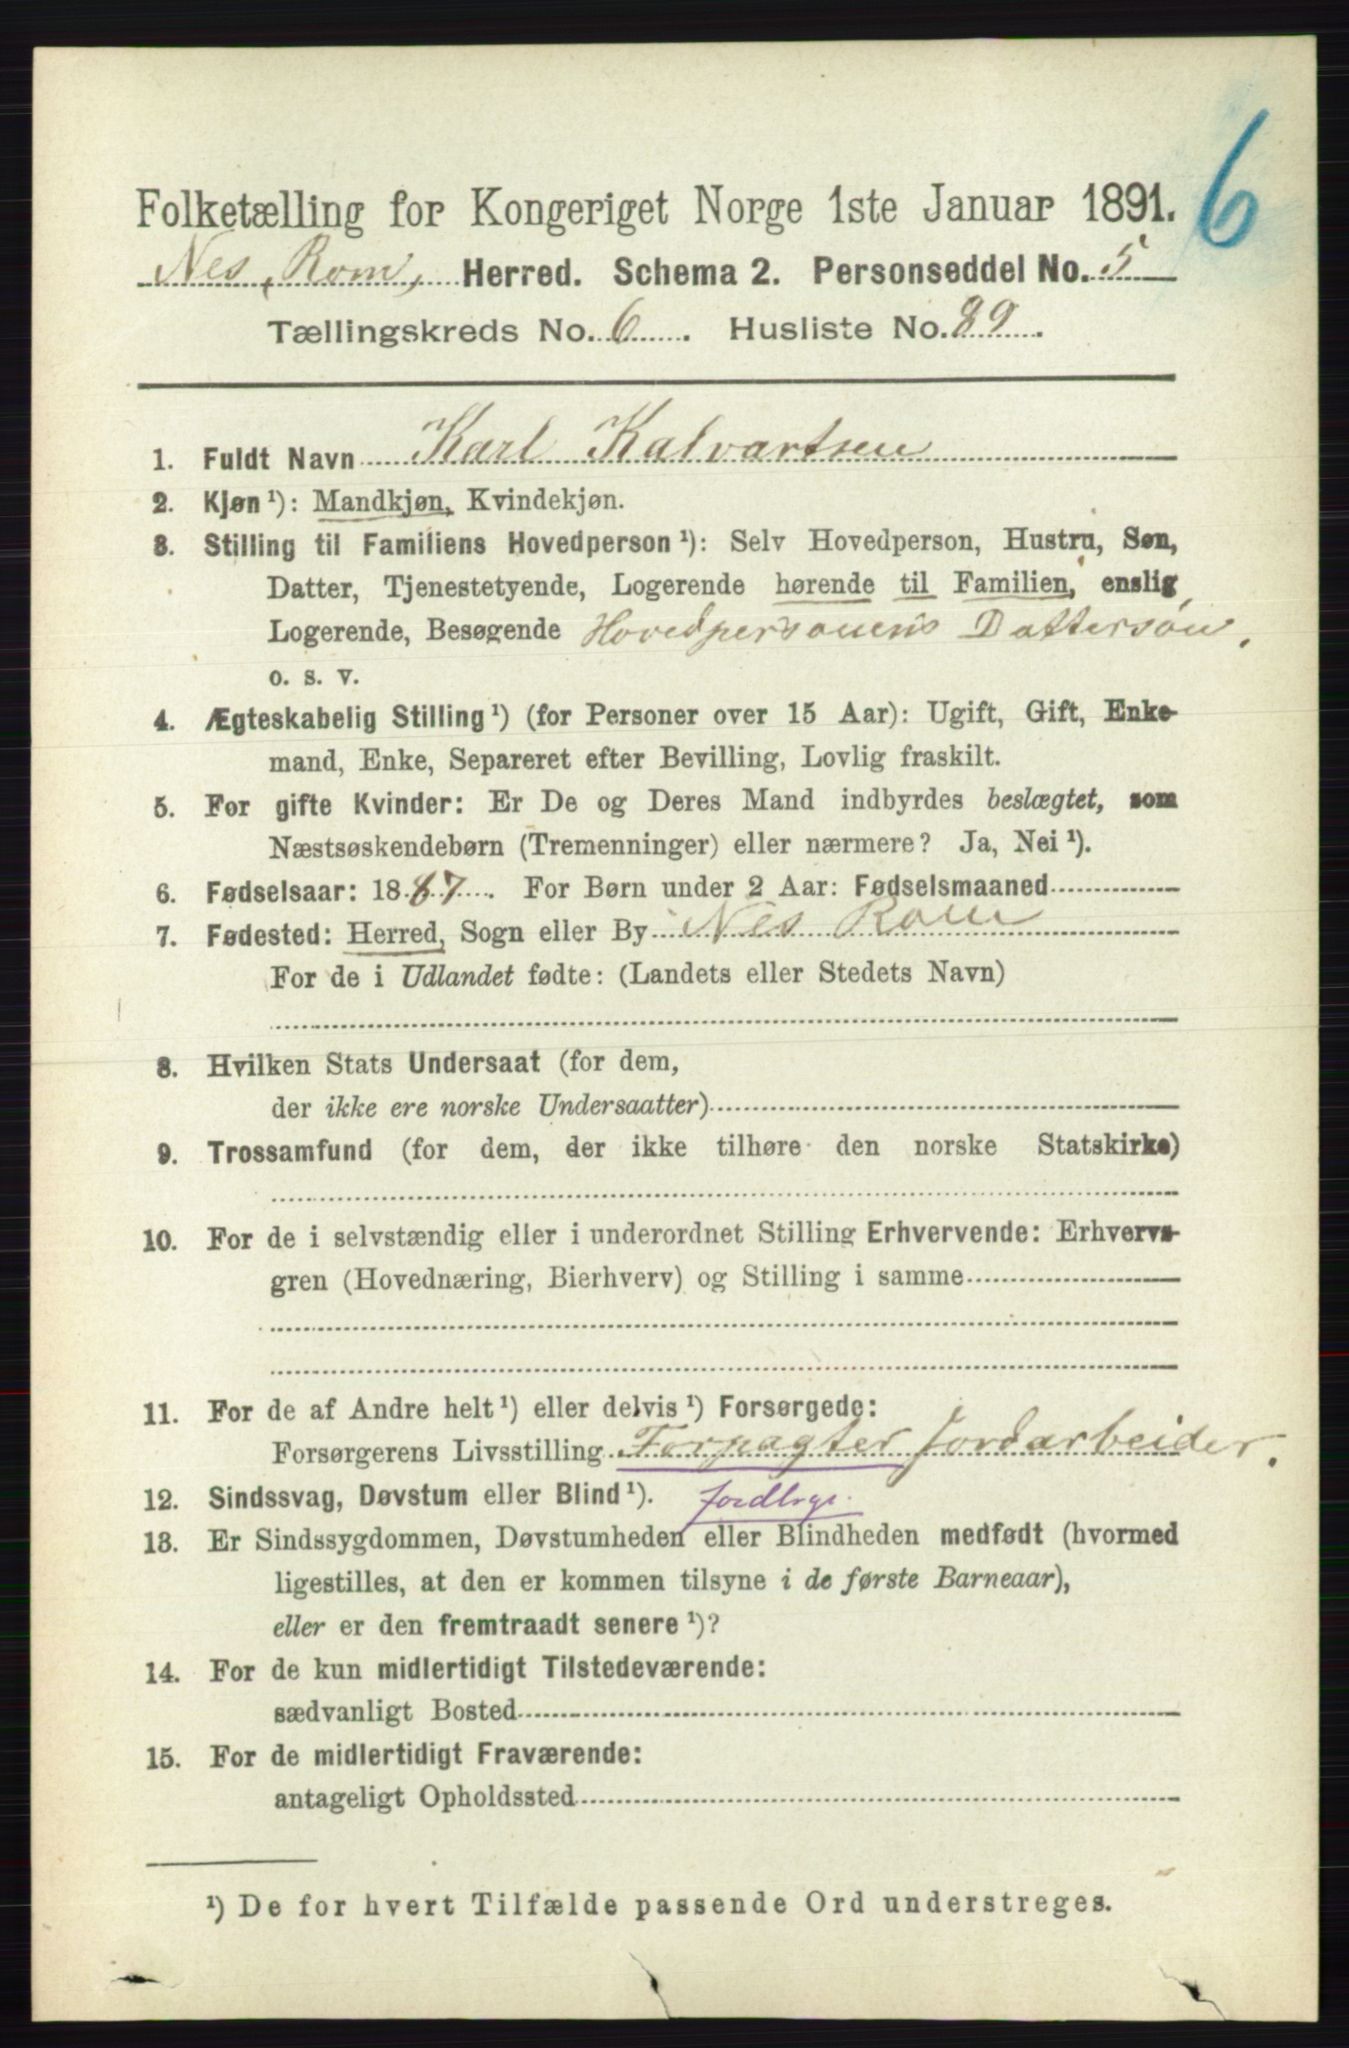 6
Folketælling for Kongeriget Norge 1ste Januar 1891.
Nes, Rom, Herred. Schema 2. Personseddel No. 5
Tællingskreds No. 6. Husliste No. 89.
1. Fuldt Navn Karl Kalvartsen
2. Kjøn ¹): Mandkjøn, Kvindekjøn.
3. Stilling til Familiens Hovedperson ¹): Selv Hovedperson, Hustru, Søn,
Datter, Tjenestetyende, Logerende hørende til Familien, enslig
Logerende, Besøgende Hovedpersonens Dattersøn.
o. s. v.
4. Ægteskabelig Stilling ¹) (for Personer over 15 Aar): Ugift, Gift, Enke-
mand, Enke, Separeret efter Bevilling, Lovlig fraskilt.
5. For gifte Kvinder: Er De og Deres Mand indbyrdes beslægtet, som
Næstsøskendebørn (Tremenninger) eller nærmere? Ja, Nei ¹).
6. Fødselsaar: 1887. For Børn under 2 Aar: Fødselsmaaned
7. Fødested: Herred, Sogn eller By Nes Rom
For de i Udlandet fødte: (Landets eller Stedets Navn)
8. Hvilken Stats Undersaat (for dem,
der ikke ere norske Undersaatter)
9. Trossamfund (for dem, der ikke tilhøre den norske Statskirke)
10. For de i selvstændig eller i underordnet Stilling Erhvervende: Erhvervs-
gren (Hovednæring, Bierhverv) og Stilling i samme
11. For de af Andre helt ¹) eller delvis ¹) Forsørgede:
Forsørgerens Livsstilling Forpagter Jordarbeider.
12. Sindssvag, Døvstum eller Blind ¹). jordbrge.
13. Er Sindssygdommen, Døvstumheden eller Blindheden medfødt (hvormed
ligestilles, at den er kommen tilsyne i de første Barneaar),
eller er den fremtraadt senere ¹)?
14. For de kun midlertidigt Tilstedeværende:
sædvanligt Bosted
15. For de midlertidigt Fraværende:
antageligt Opholdssted
¹) De for hvert Tilfælde passende Ord understreges.